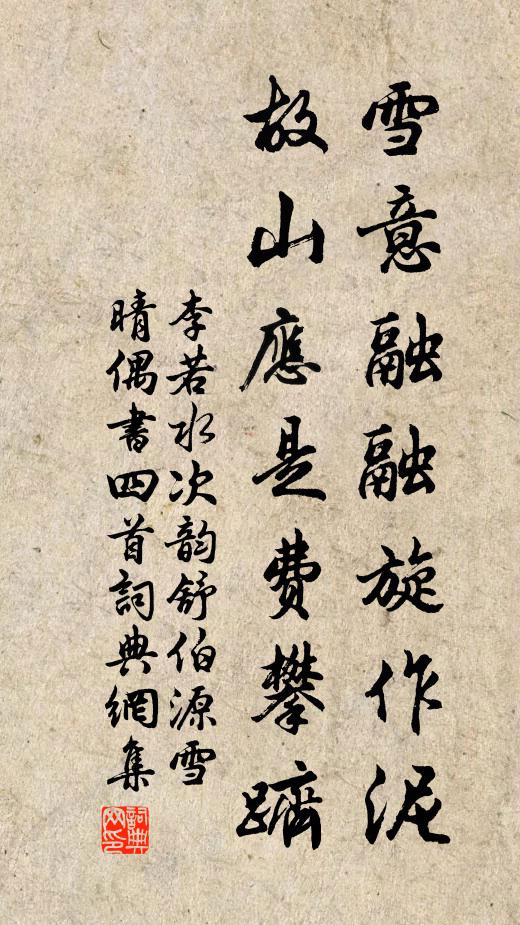 雪意融融旋作泥
故山應是費攀躋
李若水次韵舒伯源雪
晴偶書四首詞典網集
詞典网印